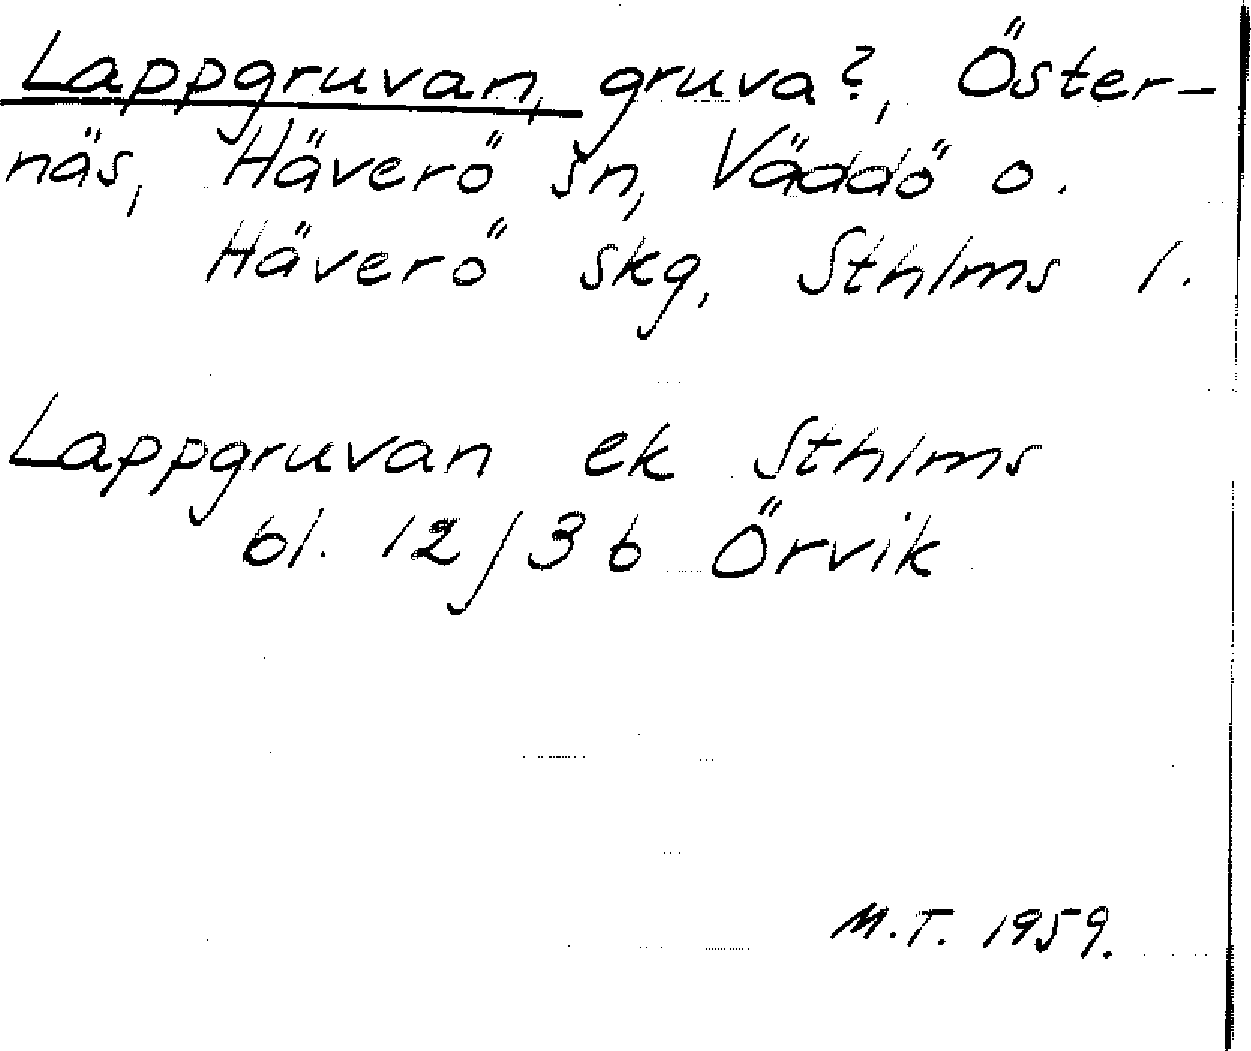 Lappgruvan, gruva?, Öster-
näs, Häverö sn, Väddö o.
Häverö skg, Sthlms l.
Lappgruvan ek Sthlms
bl. 12/3 b Örvik
M.T. 1959.